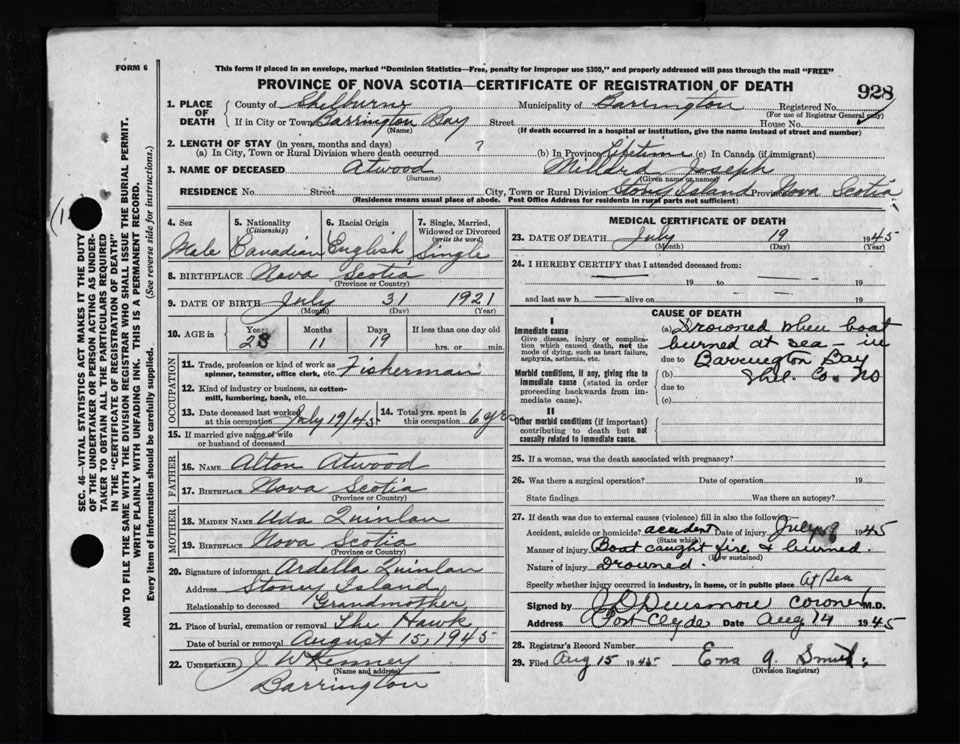 FORM 6
This form if placed in an envelope, marked "Dominion Statistics—Free, penalty for improper use $300," and properly addressed will pass through the mail "FREE"
PROVINCE OF NOVA SCOTIA—CERTIFICATE OF REGISTRATION OF DEATH
928
1. PLACE OF DEATH County of Shelburne Municipality of Barrington Registered No.
(For use of Registrar General only)
If in City or Town Barrington Bay Street House No.
(Name) (If death occurred in a hospital or institution, give the name instead of street and number)
2. LENGTH OF STAY (in years, months and days)
(a) In City, Town or Rural Division where death occurred ? (b) In Province Lifetime (c) In Canada (if immigrant)
3. NAME OF DECEASED Atwood Millard Joseph
(Surname) (Given name or names)
RESIDENCE No. Street City, Town or Rural Division Stony Island Province Nova Scotia
(Residence means usual place of abode. Post Office Address for residents in rural parts not sufficient)
SEC. 46—VITAL STATISTICS ACT MAKES IT THE DUTY
OF THE UNDERTAKER OR PERSON ACTING AS UNDER-
TAKER TO OBTAIN ALL THE PARTICULARS REQUIRED
IN THE "CERTIFICATE OF REGISTRATION OF DEATH"
AND TO FILE THE SAME WITH THE DIVISION REGISTRAR WHO SHALL ISSUE THE BURIAL PERMIT.
WRITE PLAINLY WITH UNFADING INK. THIS IS A PERMANENT RECORD.
Every item of information should be carefully supplied. (See reverse side for instructions.)
4. Sex 5. Nationality (Citizenship) 6. Racial Origin 7. Single, Married, Widowed or Divorced (write the word)
Male Canadian English Single
8. BIRTHPLACE Nova Scotia
(Province or Country)
9. DATE OF BIRTH July 31 1921
(Month) (Day) (Year)
10. AGE in Years Months Days If less than one day old
23 11 19 hrs. or min.
OCCUPATION
11. Trade, profession or kind of work as spinner, teamster, office clerk, etc. Fisherman
12. Kind of industry or business, as cotton-mill, lumbering, bank, etc.
13. Date deceased last worked at this occupation July 19/45 14. Total yrs. spent in this occupation 6 yrs
15. If married give name of wife or husband of deceased
FATHER
16. NAME Alton Atwood
17. BIRTHPLACE Nova Scotia
(Province or Country)
MOTHER
18. MAIDEN NAME Uda Quinlan
19. BIRTHPLACE Nova Scotia
(Province or Country)
20. Signature of informant Ardella Quinlan
Address Stoney Island
Relationship to deceased Grandmother
21. Place of burial, cremation or removal The Hawk
Date of burial or removal August 15, 1945
22. UNDERTAKER J W Kenney
(Name and address)
Barrington
MEDICAL CERTIFICATE OF DEATH
23. DATE OF DEATH July 19 1945
(Month) (Day) (Year)
24. I HEREBY CERTIFY that I attended deceased from:
19 to 19
and last saw h alive on 19
CAUSE OF DEATH
I
Immediate cause
Give disease, injury or complication which caused death, not the mode of dying, such as heart failure, asphyxia, asthenia, etc.
(a) Drowned when boat
burned at sea - in
due to Barrington Bay
Morbid conditions, if any, giving rise to immediate cause (stated in order proceeding backwards from immediate cause).
(b) Shel. Co. NS
due to
(c)
II
Other morbid conditions (if important) contributing to death but not causally related to immediate cause.
25. If a woman, was the death associated with pregnancy?
26. Was there a surgical operation? Date of operation 19
State findings Was there an autopsy?
27. If death was due to external causes (violence) fill in also the following:
Accident, suicide or homicide? accident Date of injury July 19 1945
(State which)
Manner of injury Boat caught fire & burned.
(How sustained)
Nature of injury Drowned.
Specify whether injury occurred in industry, in home, or in public place At Sea
Signed by coroner M.D.
Address Port Clyde Date Aug 14 1945
28. Registrar's Record No.
29. Filed Aug 15 1945 Ena A. Smith
(Division Registrar)